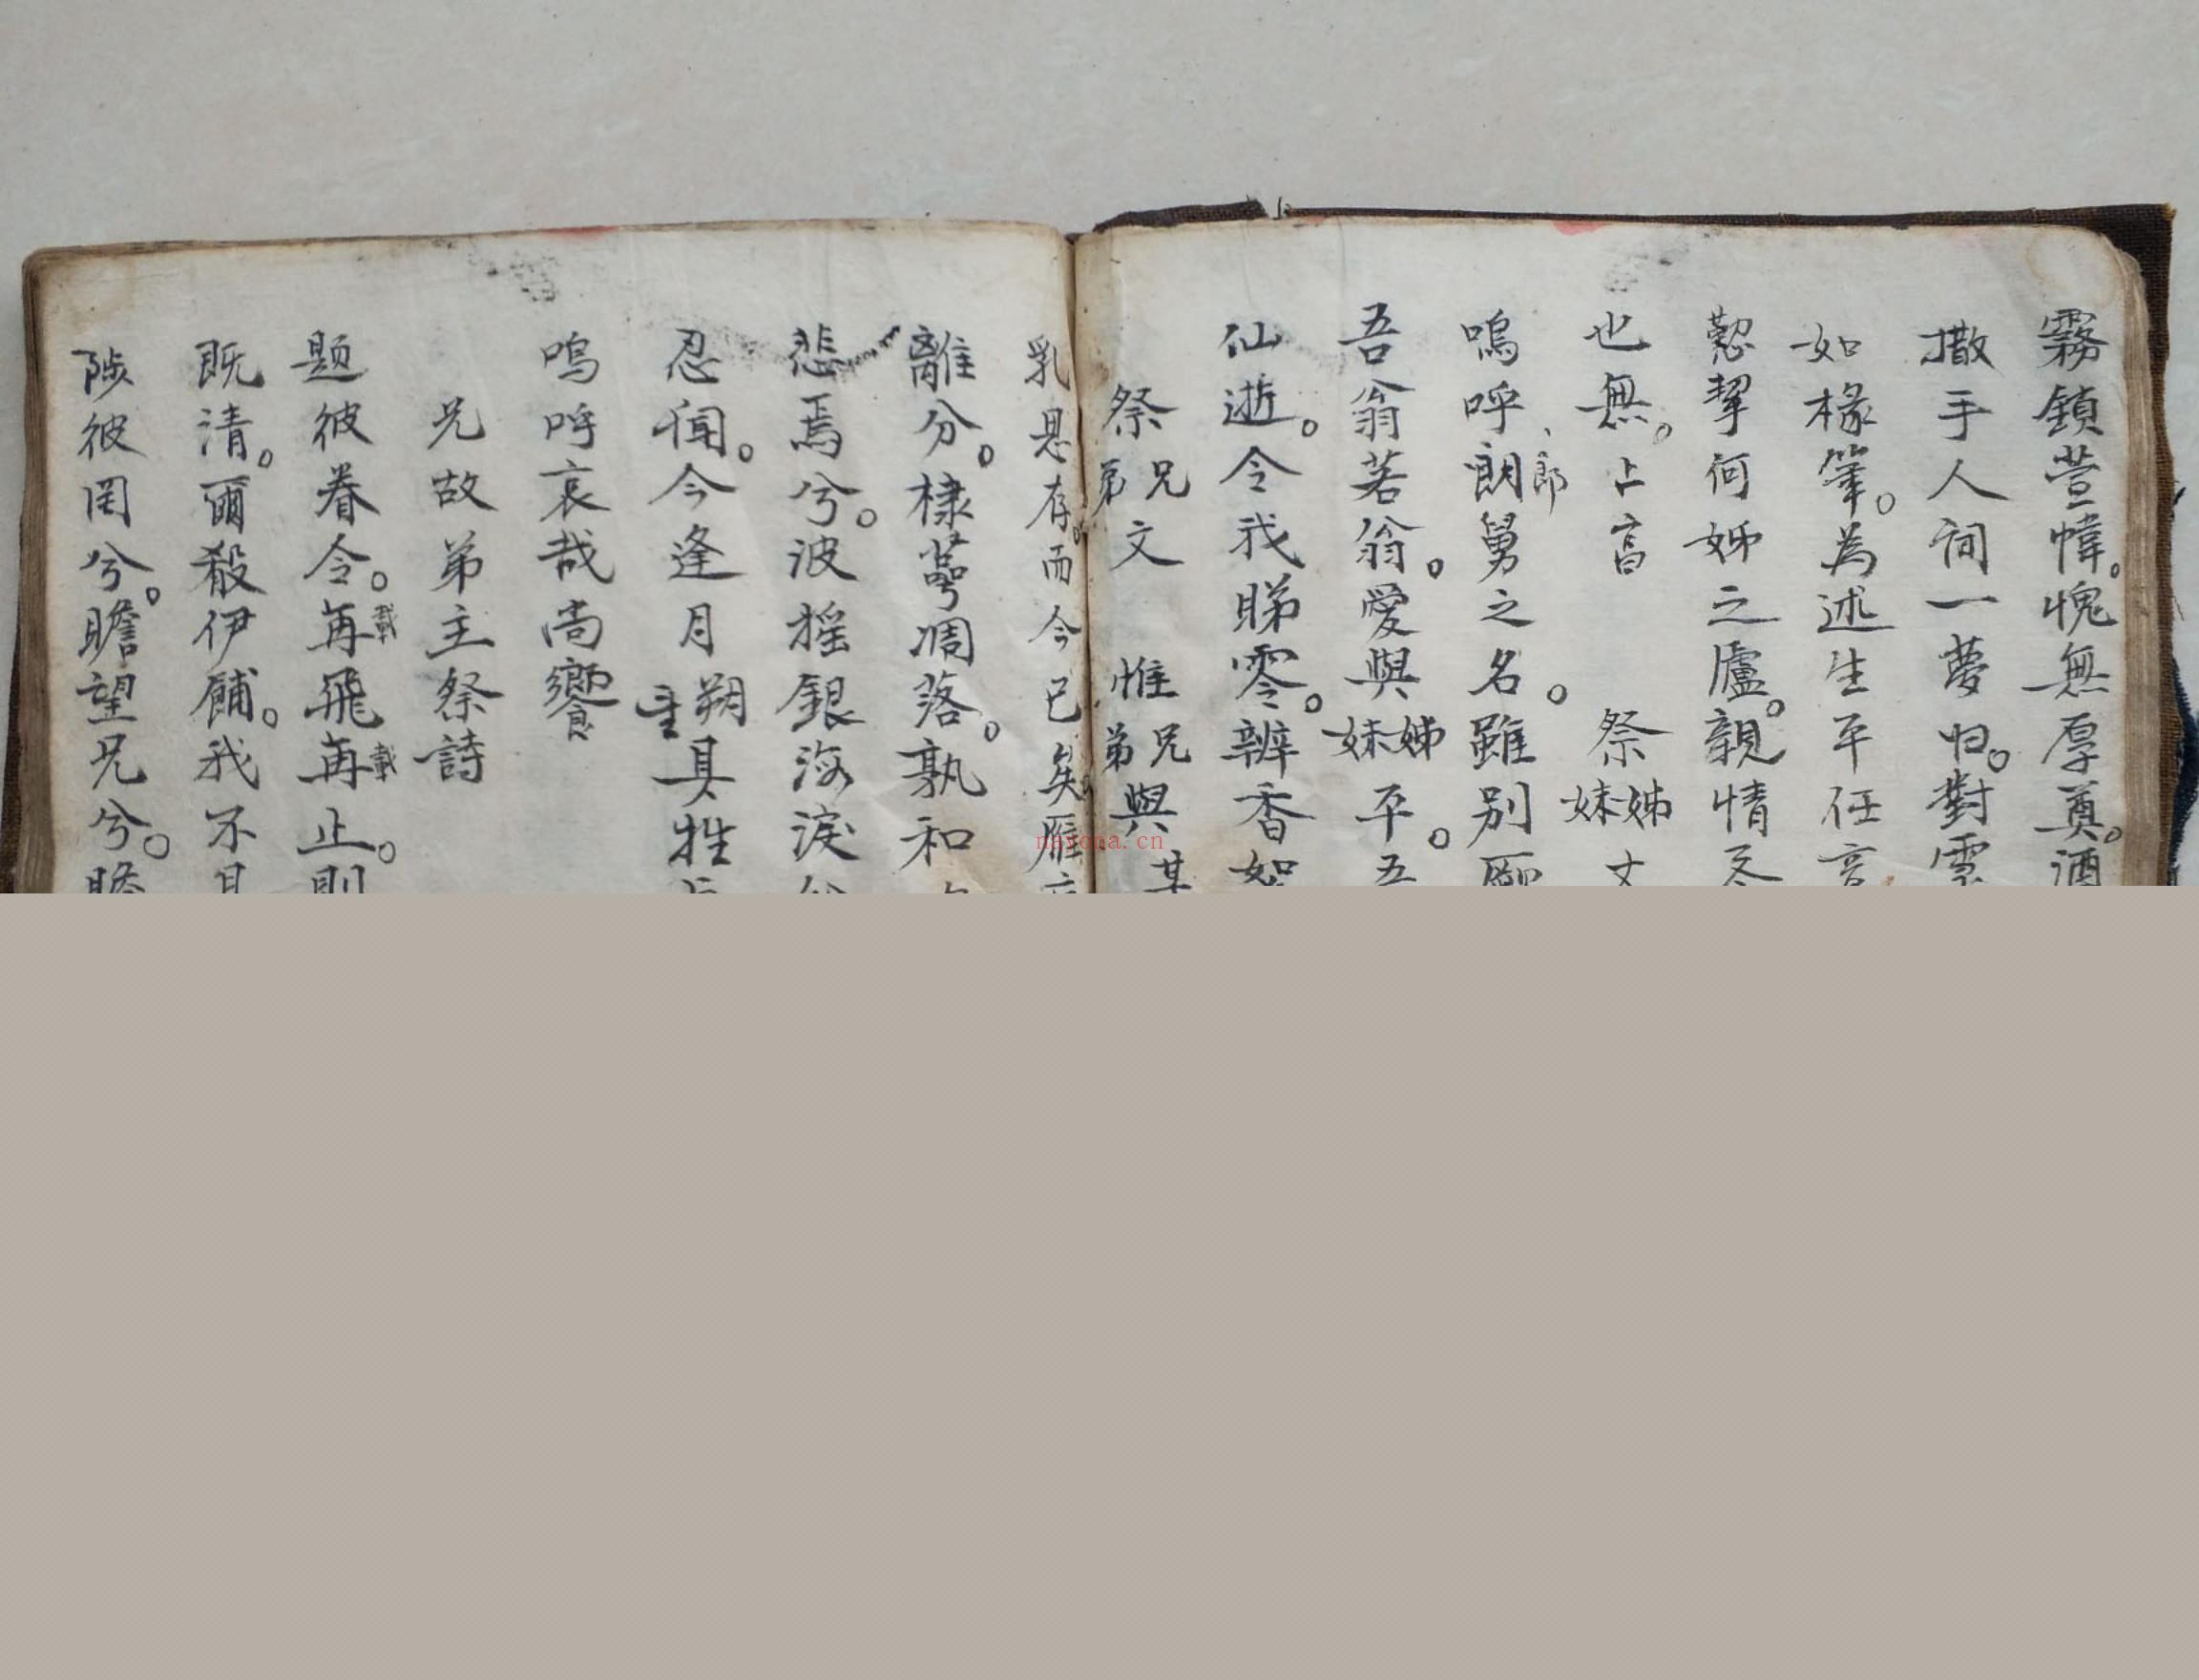 霧鎖萱幃。愧無厚奠。酒
撒手人间一夢归。對靈
如椽筆。為述生平任
懃挈何姊之廬。親情
也無。上亯 祭姊妹丈
嗚呼朗郎舅之名。雖别
吾翁若翁。愛與姊妹平。五
仙逝。令我睇零。辦香如
祭兄弟文 惟兄弟與某
乳恩存。而今已矣。雁
離分。棣萼凋落。孰和
悲焉兮。波摇銀海淚
忍闻。今逢月朔望具牲
嗚呼哀哉尚饗
兄故弟主祭詩
题彼眷令。再載飛再載止。則
既清。爾殺伊餔。我不
陟彼罔兮。瞻望兄兮。瞻
nayona.cn